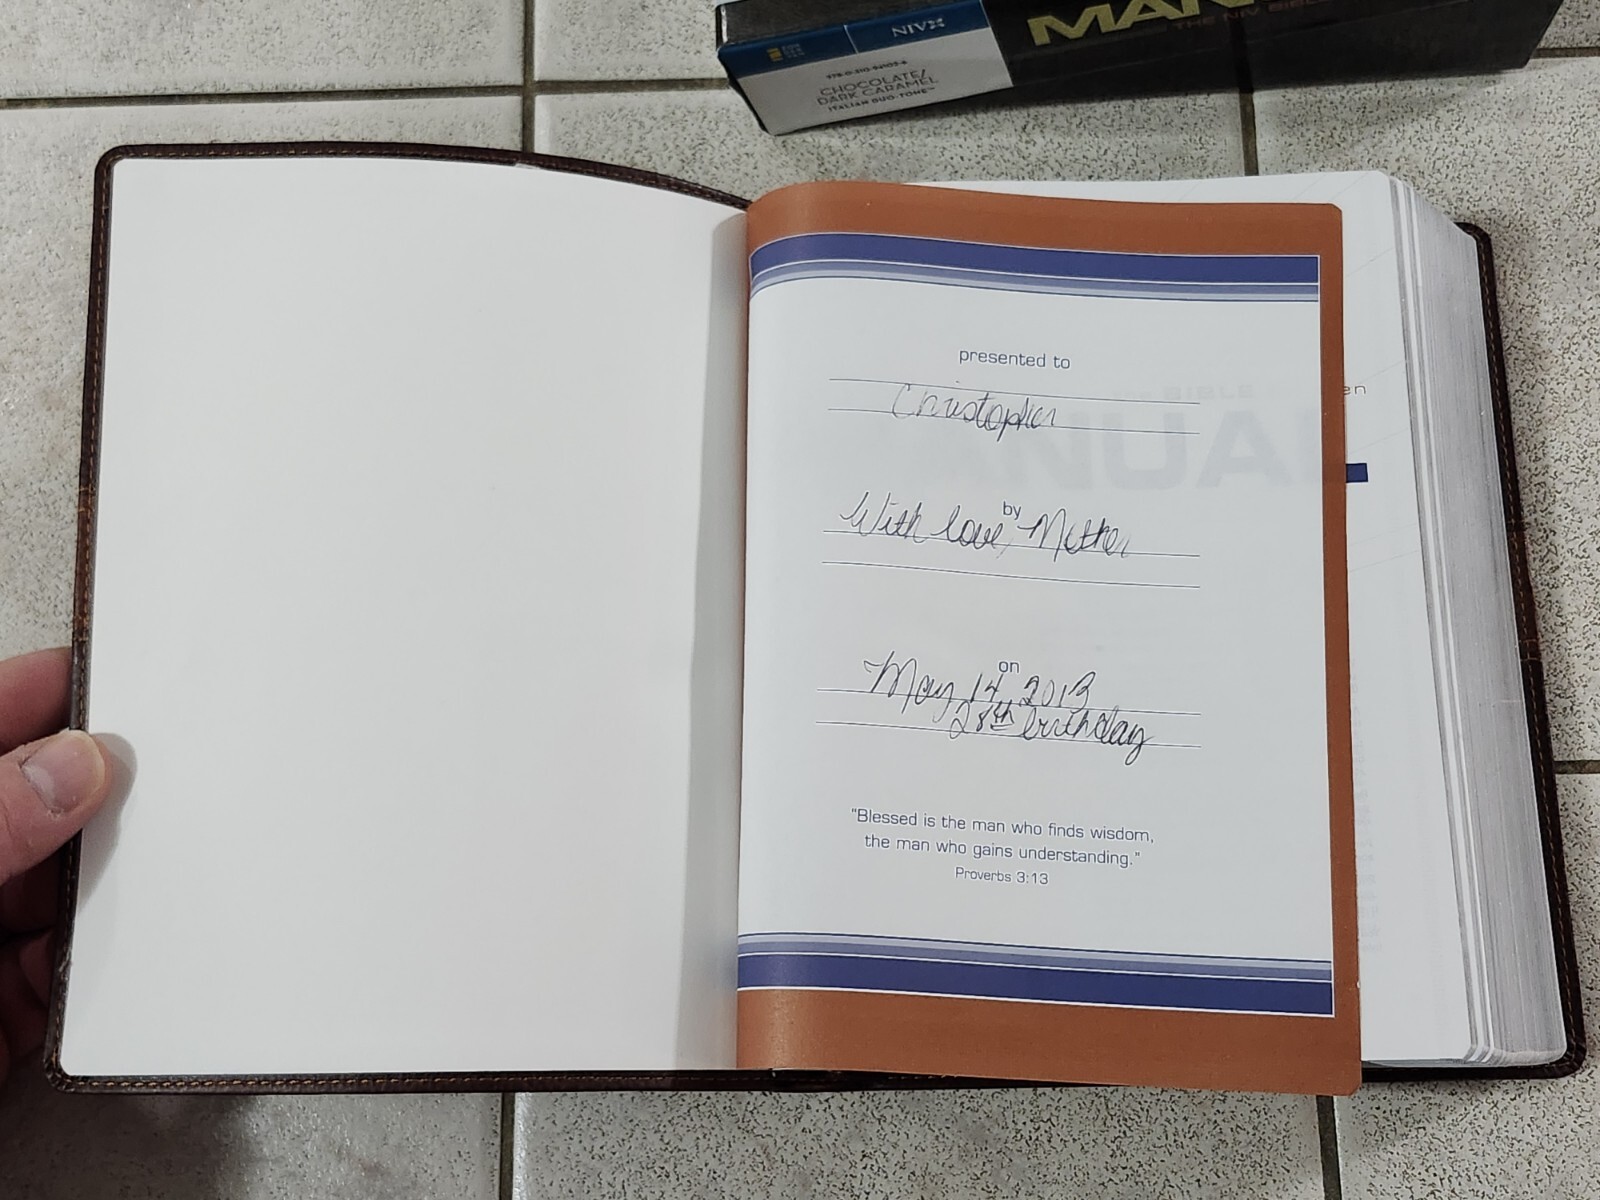 NIV
MAN
THE NIV BIBLE
978-0-310-94103-6
CHOCOLATE/
DARK CARAMEL
ITALIAN DUO-TONE™
presented to
Christopher
by
With love, Mother
on
May 14 2013
28th birthday
"Blessed is the man who finds wisdom,
the man who gains understanding."
Proverbs 3:13
en